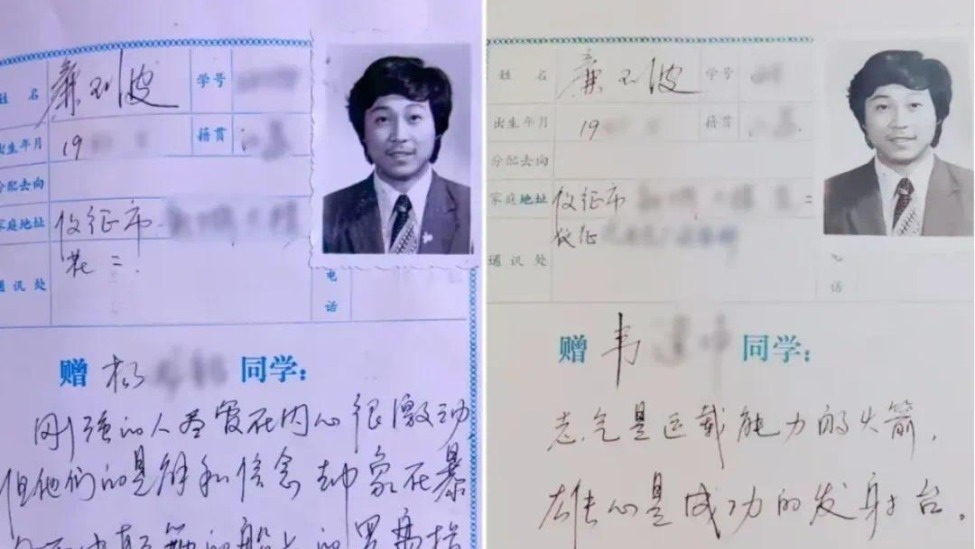 姓名 廉玉波 学号
出生年月 19 籍贯
分配去向
家庭地址 仪征市
花二.
通讯处 电话
赠 杨 同学:
刚强的人尽管在内心很激动
但他们的是解和信念却象在暴
风雨中颠簸的船上的罗盘指
姓名 廉玉波 学号
出生年月 19 籍贯
分配去向
家庭地址 仪征市
仪征
通讯处 电话
赠 韦 同学:
志气是运载能力的火箭,
雄心是成功的发射台.